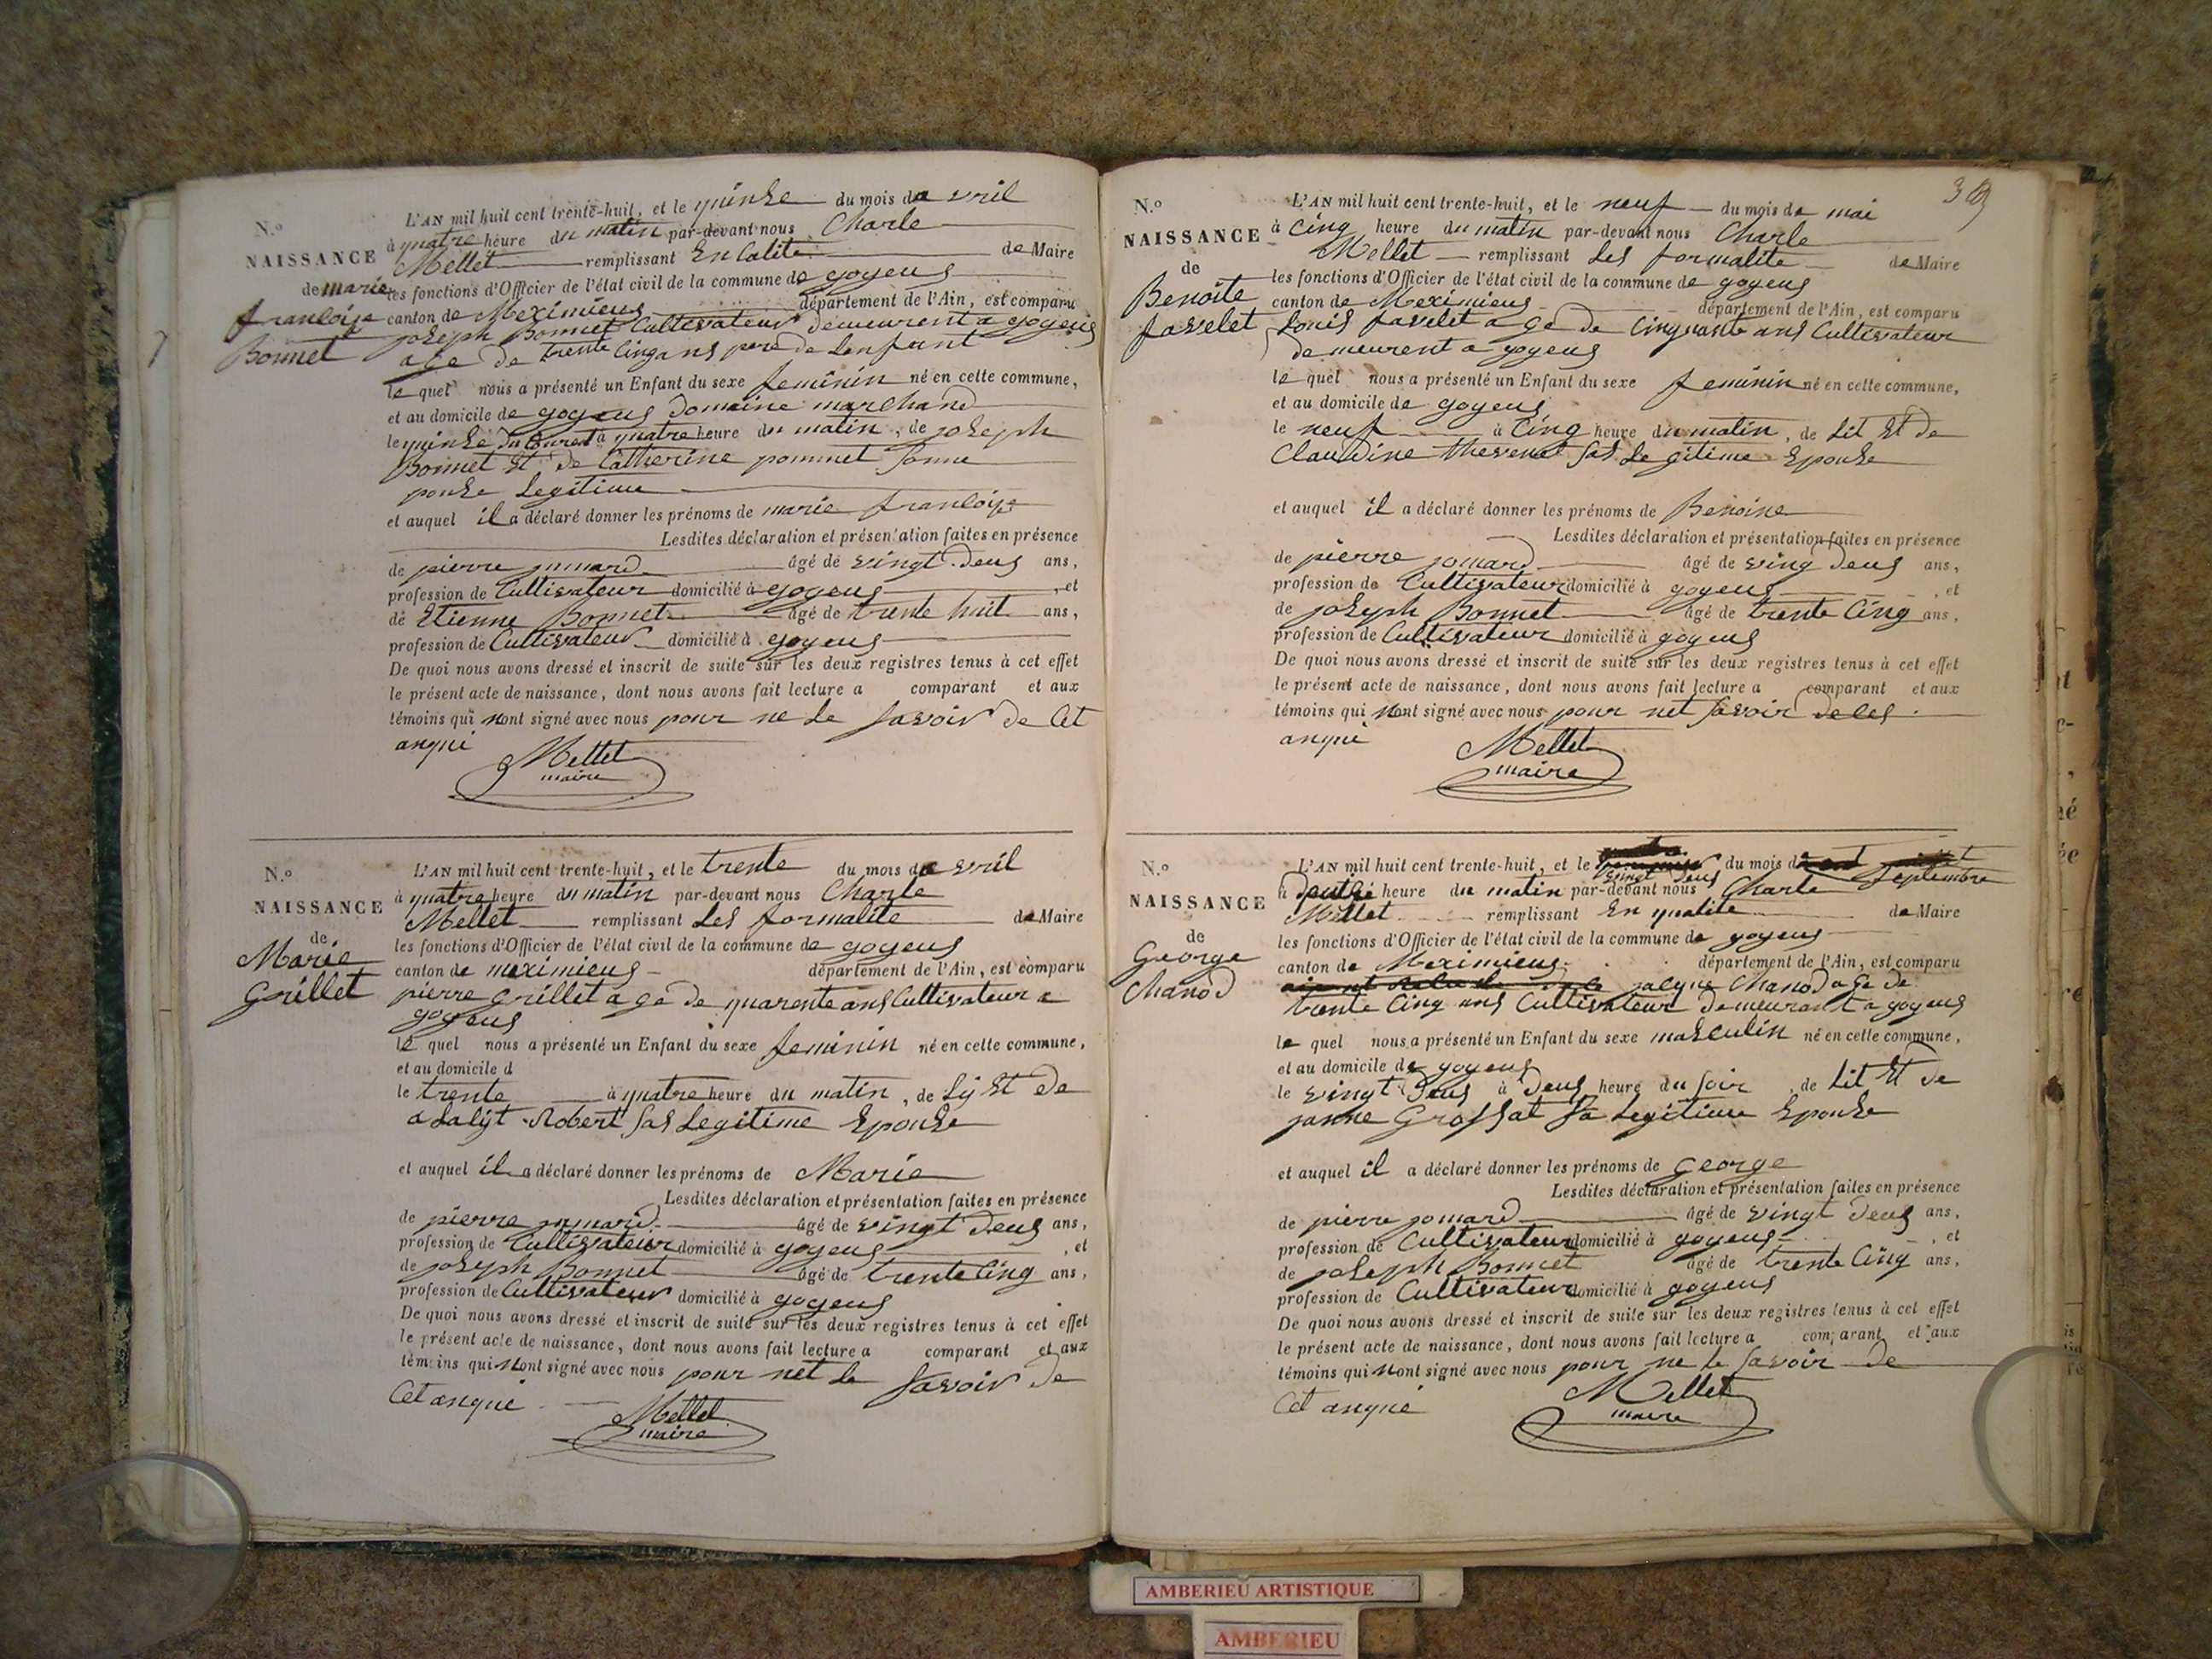 N.o
NAISSANCE
de marie
françoise
Bonnet
L'AN mil huit cent trente-huit, et le quinze du mois de avril
à quatre heure du matin par-devant nous Charle
Mellet remplissant En Calite de Maire
les fonctions d'Officier de l'état civil de la commune de goyeus
canton de Meximieus département de l'Ain, est comparu
joseph Bonnet Cultivateur demeurent a goyeus
age de trente Cinq ans pere de Lenfant
le quel nous a présenté un Enfant du sexe feminin né en cette commune,
et au domicile de goyeus Domaine marchand
le quinze du Courent à quatre heure du matin, de joseph
Bonnet Et de Catherine pommet
pouse Legitime
et auquel il a déclaré donner les prénoms de marie françoise
Lesdites déclaration et présentation faites en présence
de pierre jomard âgé de vingt deus ans,
profession de Cultivateur domicilié à goyeus, et
de Etienne Bonnet âgé de trente huit ans,
profession de Cultivateur domicilié à goyeus
De quoi nous avons dressé et inscrit de suite sur les deux registres tenus à cet effet
le présent acte de naissance, dont nous avons fait lecture a comparant et aux
témoins qui nont signé avec nous pour ne Le savoir de Cet
anqui
Mellet
maire
N.o
NAISSANCE
de
Marie
Grillet
L'AN mil huit cent trente-huit, et le trente du mois de avril
à quatre heure du matin par-devant nous Charle
Mellet remplissant Les formalite de Maire
les fonctions d'Officier de l'état civil de la commune de goyeus
canton de meximieus département de l'Ain, est comparu
pierre Grillet age de quarente ans Cultivateur a
goyeus
le quel nous a présenté un Enfant du sexe feminin né en cette commune,
et au domicile d
le trente à quatre heure du matin, de Lý Et de
Robert sas Legitime Epouse
et auquel il a déclaré donner les prénoms de Marie
Lesdites déclaration et présentation faites en présence
de pierre jomard âgé de vingt deus ans,
profession de Cultivateur domicilié à goyeus, et
de joseph Bonnet âgé de trente Cinq ans,
profession de Cultivateur domicilié à goyeus
De quoi nous avons dressé et inscrit de suite sur les deux registres tenus à cet effet
le présent acte de naissance, dont nous avons fait lecture a comparant et aux
témoins qui nont signé avec nous pour net Le savoir de
Cet anqui
Mellet
maire
N.o
NAISSANCE
de
Benoite
favelet
L'AN mil huit cent trente-huit, et le neuf du mois de mai
à Cinq heure du matin par-devant nous Charle
Mellet remplissant Les formalite de Maire
les fonctions d'Officier de l'état civil de la commune de goyeus
canton de Meximieus département de l'Ain, est comparu
Louis favelet age de Cinquante ans Cultivateur
demeurent a goyeus
le quel nous a présenté un Enfant du sexe feminin né en cette commune,
et au domicile de goyeus
le neuf à Cinq heure du matin, de Lit Et de
Claudine thevenet sas Legitime Epouse
et auquel il a déclaré donner les prénoms de Benoine
Lesdites déclaration et présentation faites en présence
de pierre jomard âgé de ving deus ans,
profession de Cultivateur domicilié à goyeus, et
de joseph Bonnet âgé de trente Cinq ans,
profession de Cultivateur domicilié à goyeus
De quoi nous avons dressé et inscrit de suite sur les deux registres tenus à cet effet
le présent acte de naissance, dont nous avons fait lecture a comparant et aux
témoins qui nont signé avec nous pour net savoir de Ces
anqui
Mellet
maire
N.o
NAISSANCE
de
George
Chanod
L'AN mil huit cent trente-huit, et le vingt deus du mois de septembre
à heure du matin par-devant nous Charle
Mellet remplissant En qualite de Maire
les fonctions d'Officier de l'état civil de la commune de goyeus
canton de Meximieus département de l'Ain, est comparu
jacque Chanod age de
trente Cinq ans Cultivateur demeurant a goyeus
le quel nous a présenté un Enfant du sexe masculin né en cette commune,
et au domicile de goyeus
le vingt deus à deus heure du soir, de Lit Et de
janne Grossat sa Legitime Epouse
et auquel il a déclaré donner les prénoms de George
Lesdites déclaration et présentation faites en présence
de pierre jomard âgé de vingt deus ans,
profession de Cultivateur domicilié à goyeus, et
de joseph Bonnet âgé de trente Cinq ans,
profession de Cultivateur domicilié à goyeus
De quoi nous avons dressé et inscrit de suite sur les deux registres tenus à cet effet
le présent acte de naissance, dont nous avons fait lecture a comparant et aux
témoins qui nont signé avec nous pour ne Le savoir de
Cet anqui
Mellet
maire
AMBERIEU ARTISTIQUE
AMBERIEU